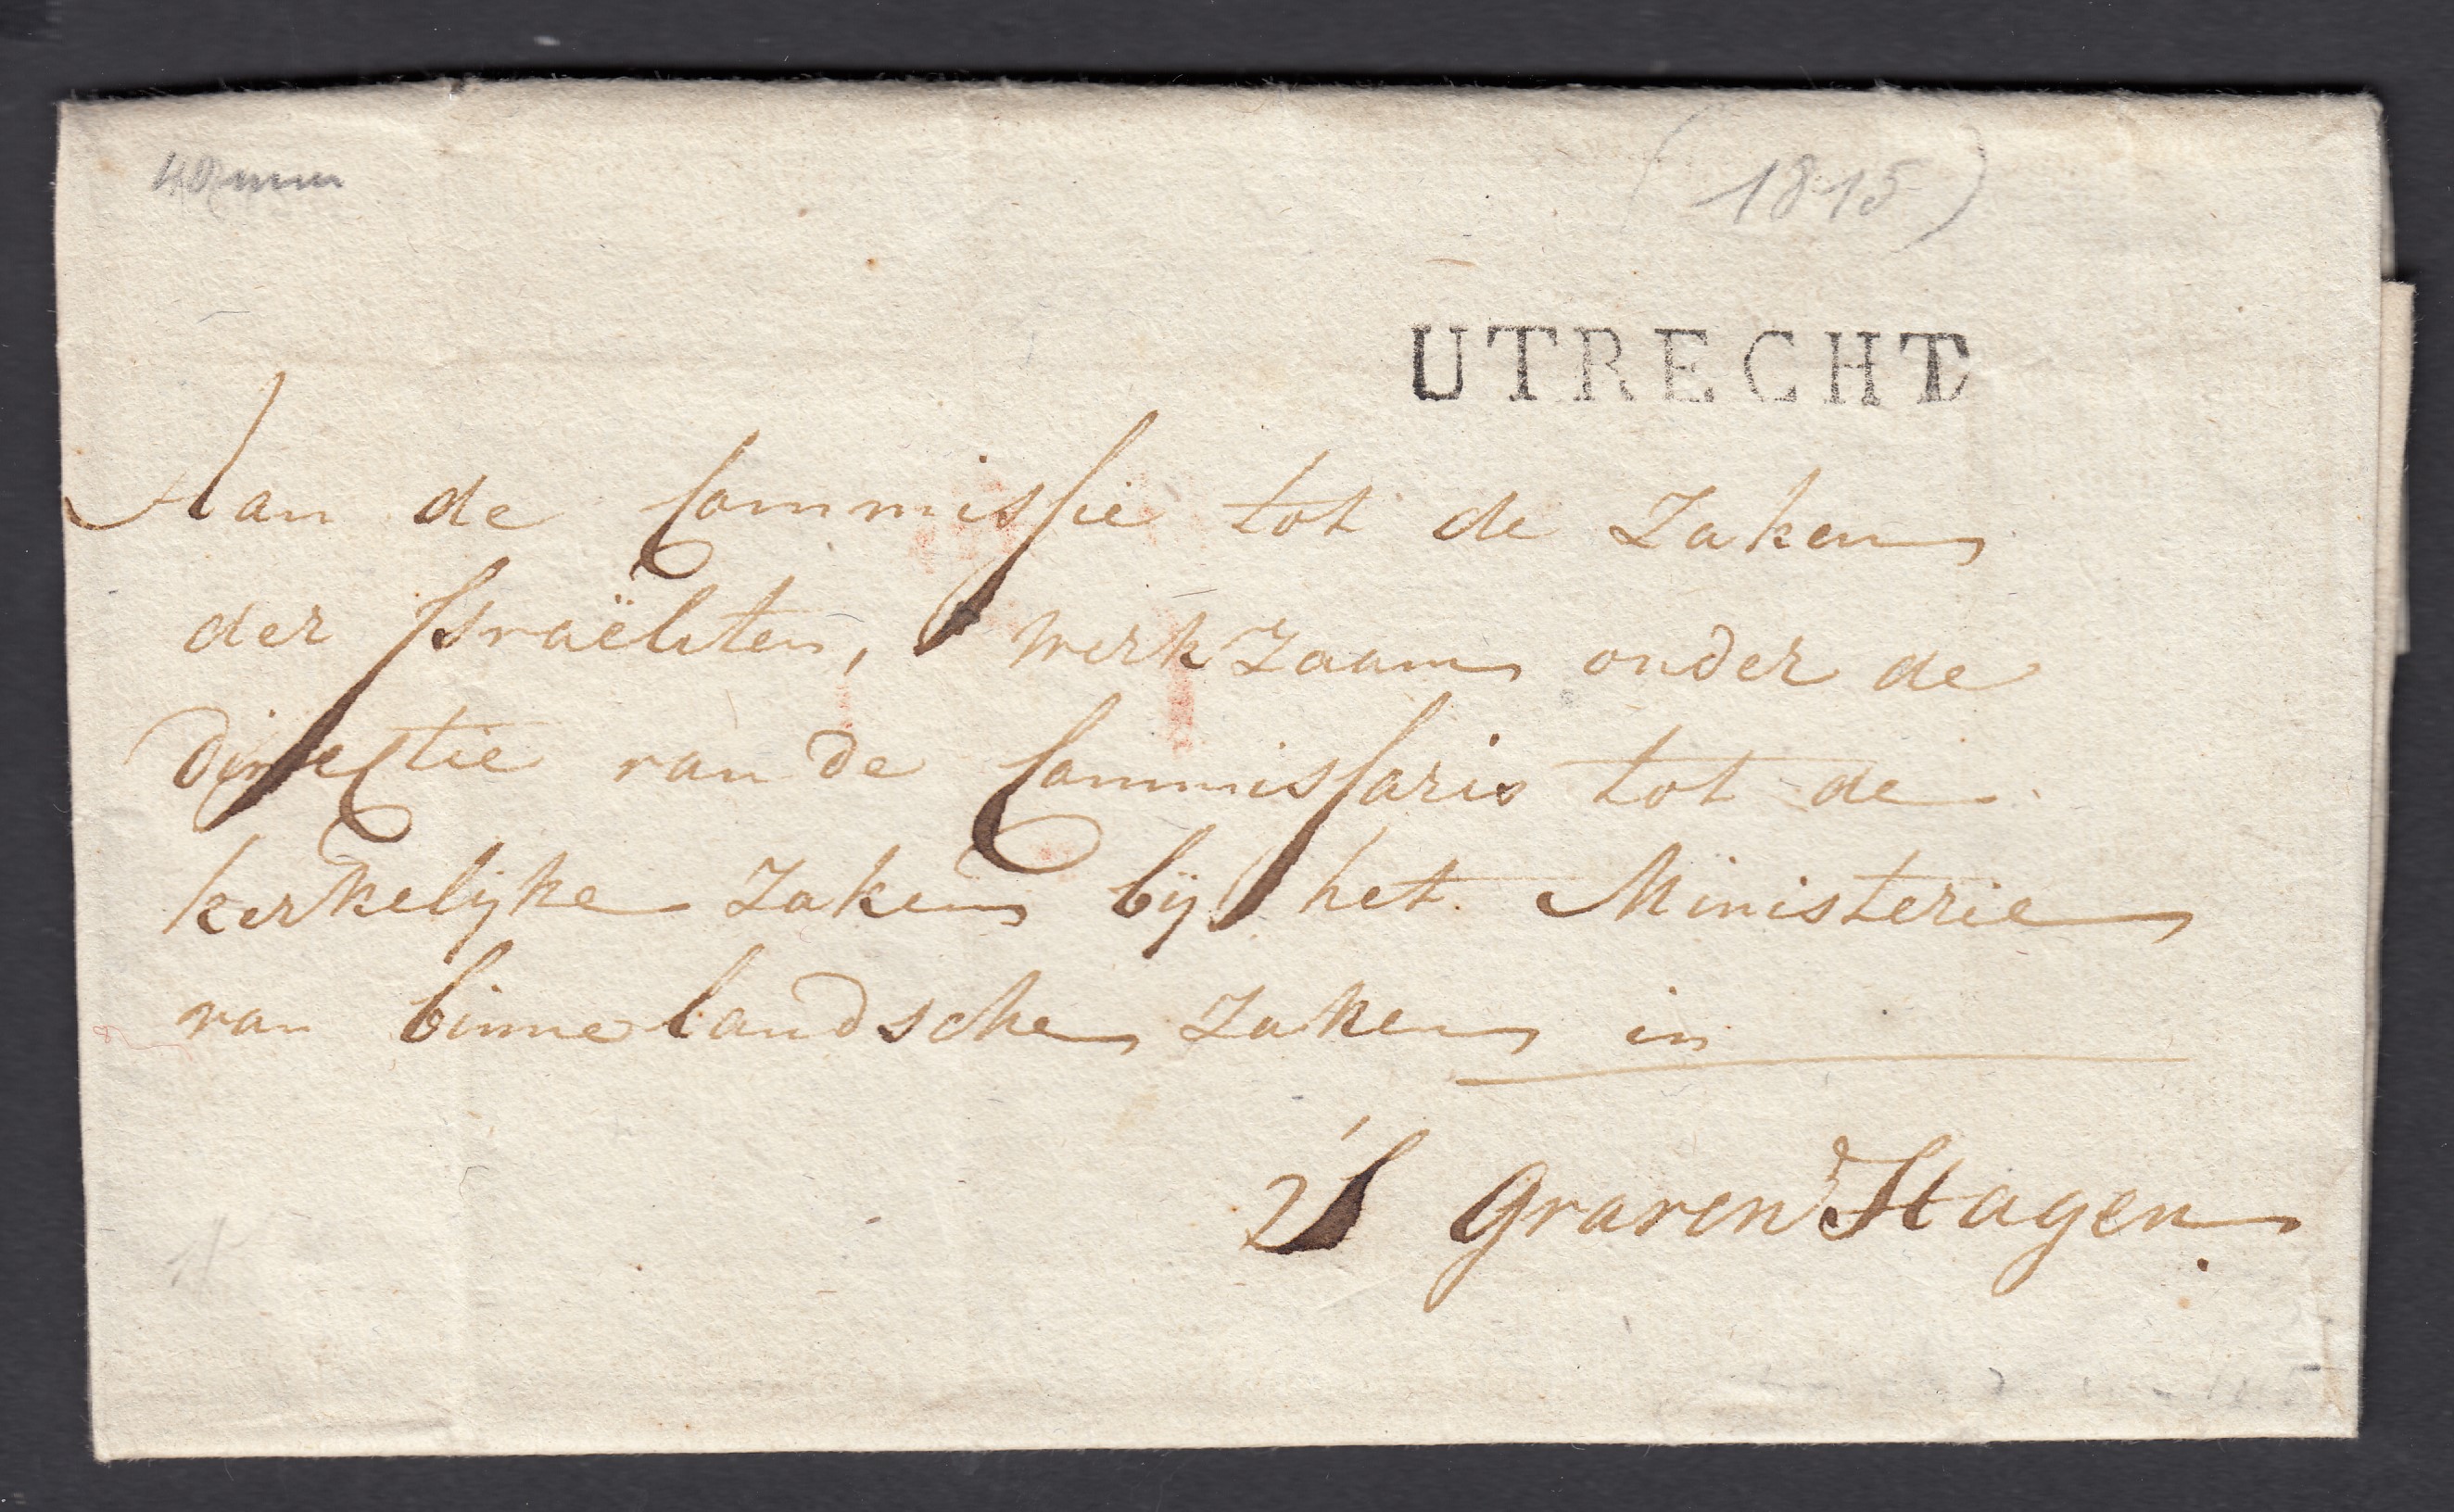 (1815)
UTRECHT
Aan de Commissie tot de Zaken
der Israëliten, werkzaam onder de
directie van de Commissaris tot de
kerkelijke Zaken bij het Ministerie
van binnelandsche Zaken in
's Graven Hagen.